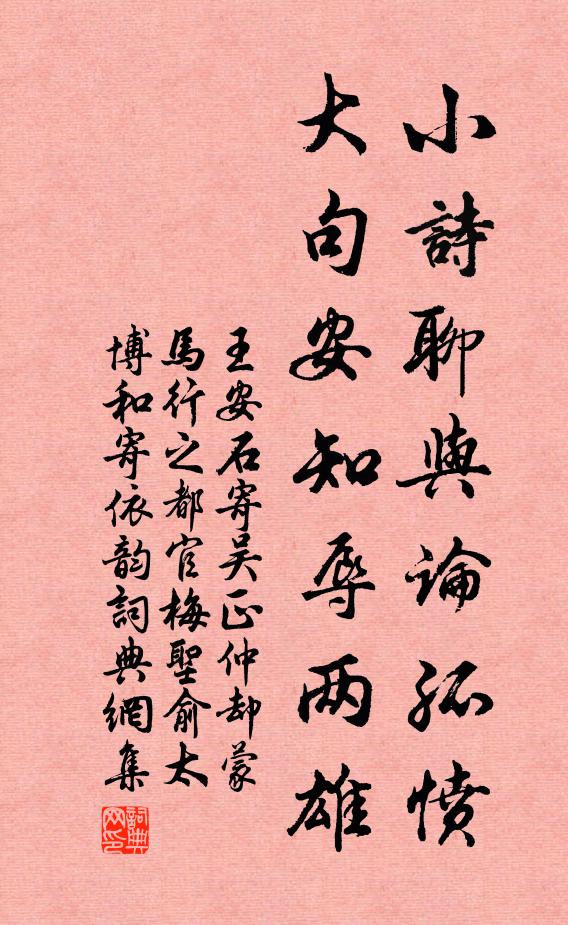 小詩聊與論孤憤
大句安知辱两雄
王安石寄吴正仲却蒙
馬行之都官梅聖俞太
博和寄依韵詞典網集
詞典
网印